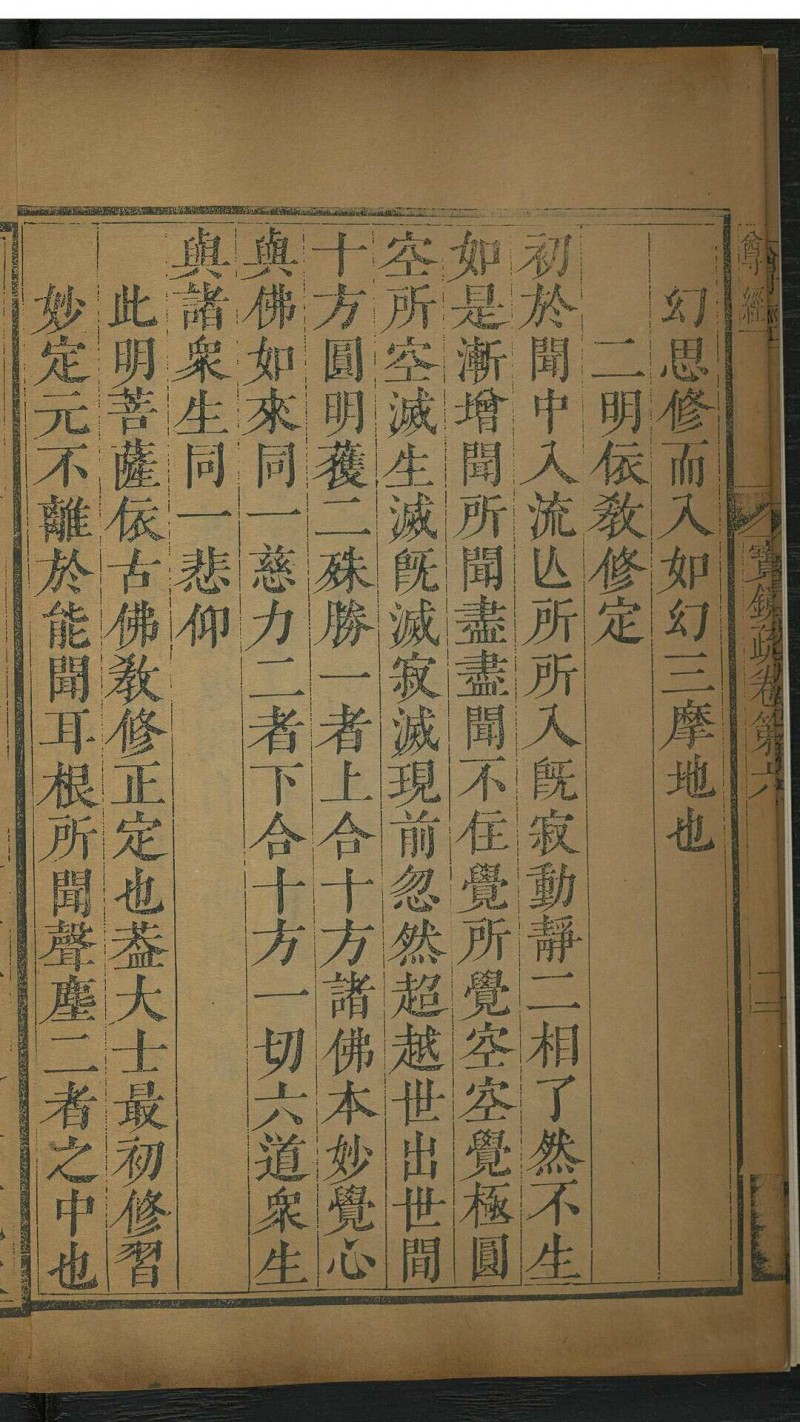 尊經
寶鏡疏卷第六
二
幻思修而入如幻三摩地也
二明依教修定
初於聞中入流亾所所入旣寂動靜二相了然不生
如是漸增聞所聞盡盡聞不住覺所覺空空覺極圓
空所空滅生滅旣滅寂滅現前忽然超越世出世間
十方圓明獲二殊勝一者上合十方諸佛本妙覺心
與佛如來同一慈力二者下合十方一切六道衆生
與諸衆生同一悲仰
此明菩薩依古佛教修正定也葢大士最初修習
妙定元不離於能聞耳根所聞聲塵二者之中也